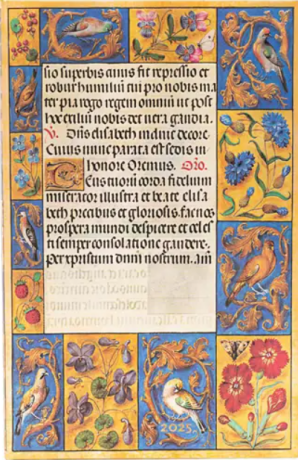 sio superbis cuius fit repressio et
robur humiliū tui pro nobis ma
ter pia rogo regem omniū ut post
hoc exiliū nobis det vera gaudia.
V. Diffusa est in decore.
Cuius nunc parata est sedis in
honore Oremus. Oro.
Deus tuorū corda fidelium
miserator illustra et beate elisa
beth precibus et gloriosis fac nos
prospera mundi despicere et celes
ti semper consolatione gaudere.
Per xpistum dnm nostrum. am
2025